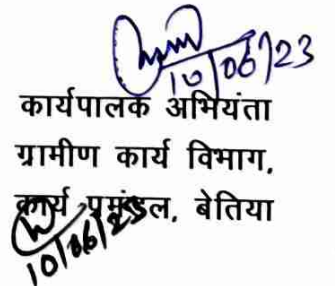 10/06/23
कार्यपालक अभियंता
ग्रामीण कार्य विभाग,
कार्य प्रमंडल, बेतिया
10/06/23